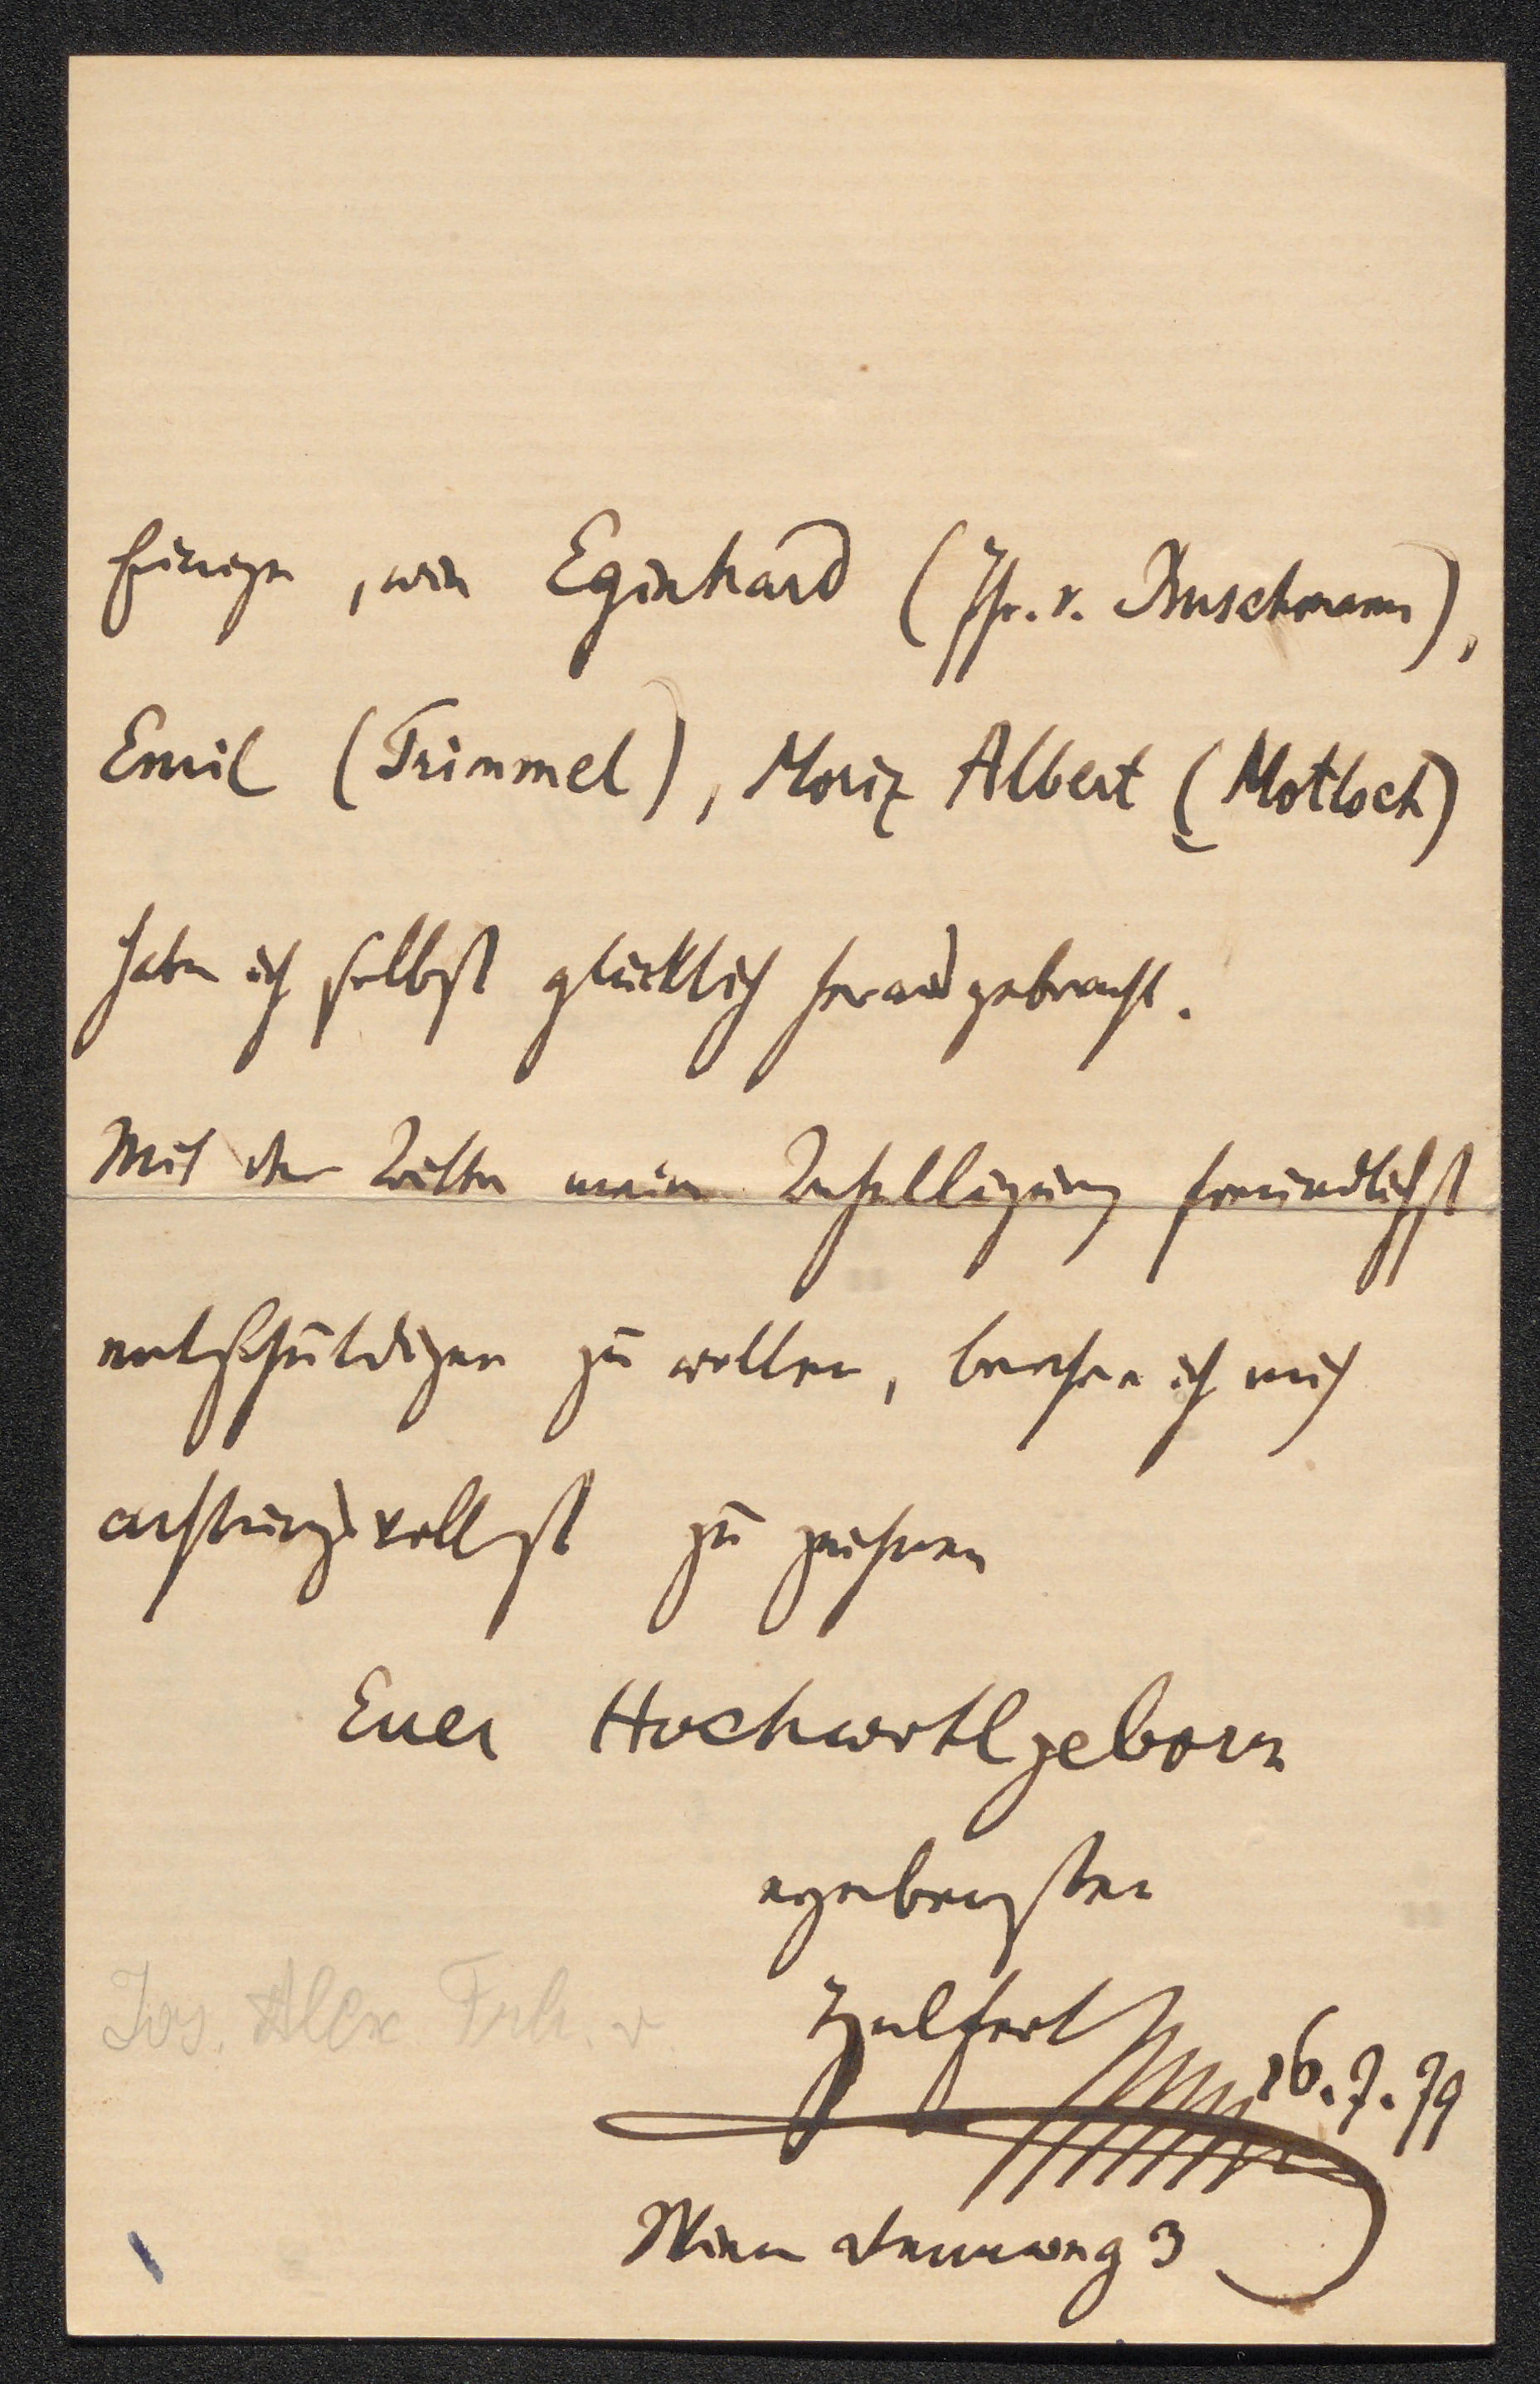 Einige, wie Eginhard (Fhr. v. Püschmann),
Emil (Trimmel), Moriz Albert (Motloch)
habe ich selbst glücklich herausgebracht.
Mit der Bitte meine Behelligung freundlichst
entschuldigen zu wollen, beehre ich mich
achtungsvollst zu zeichnen
Euer Hochwohlgeborn
ergebenster
Helfert
26.7.79
Jos. Alex Frh. v.
Wien Rennweg 3